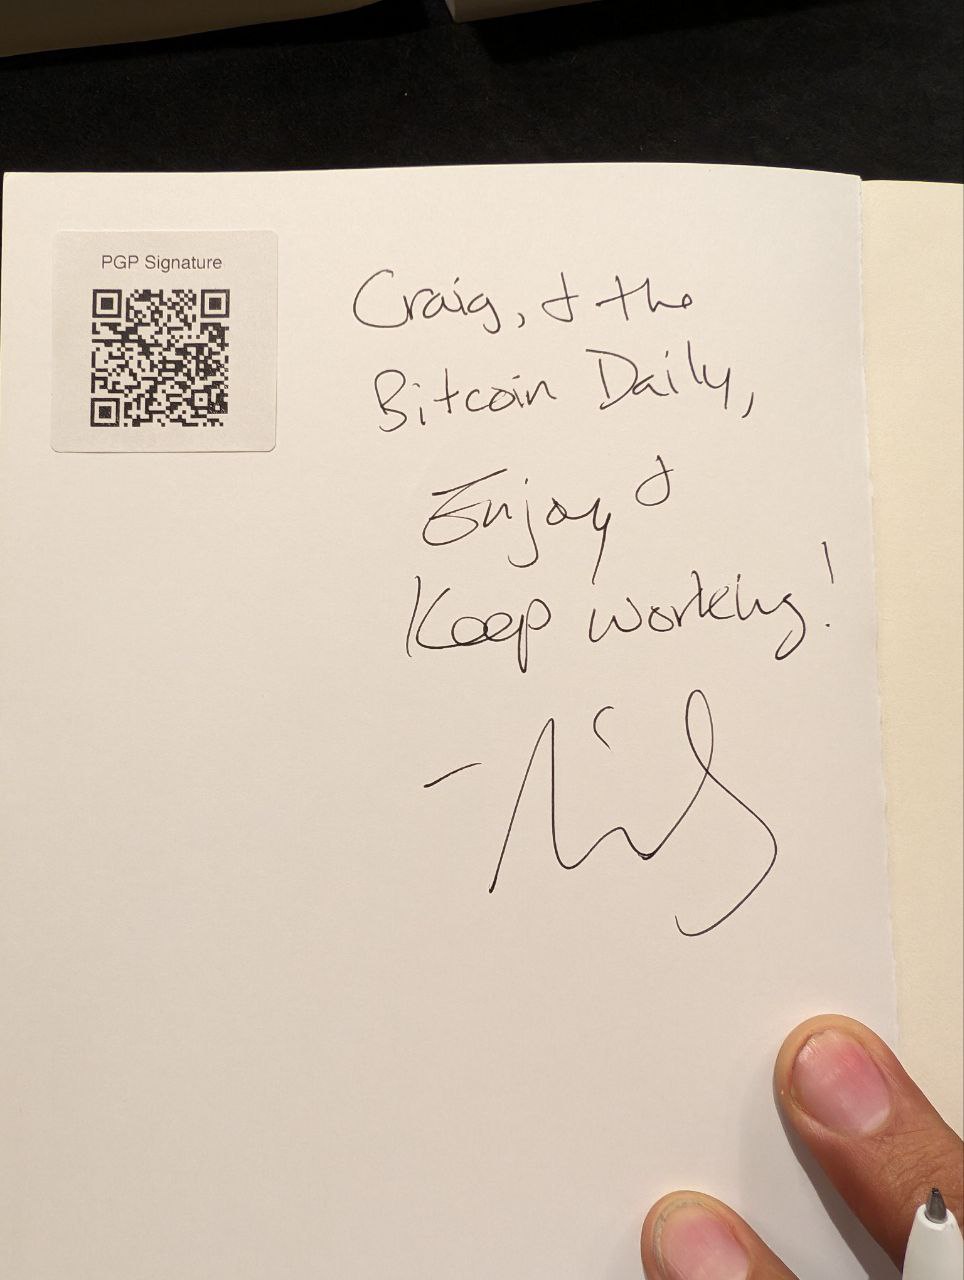 PGP Signature
Craig, & the
Bitcoin Daily,
Enjoy &
Keep working!